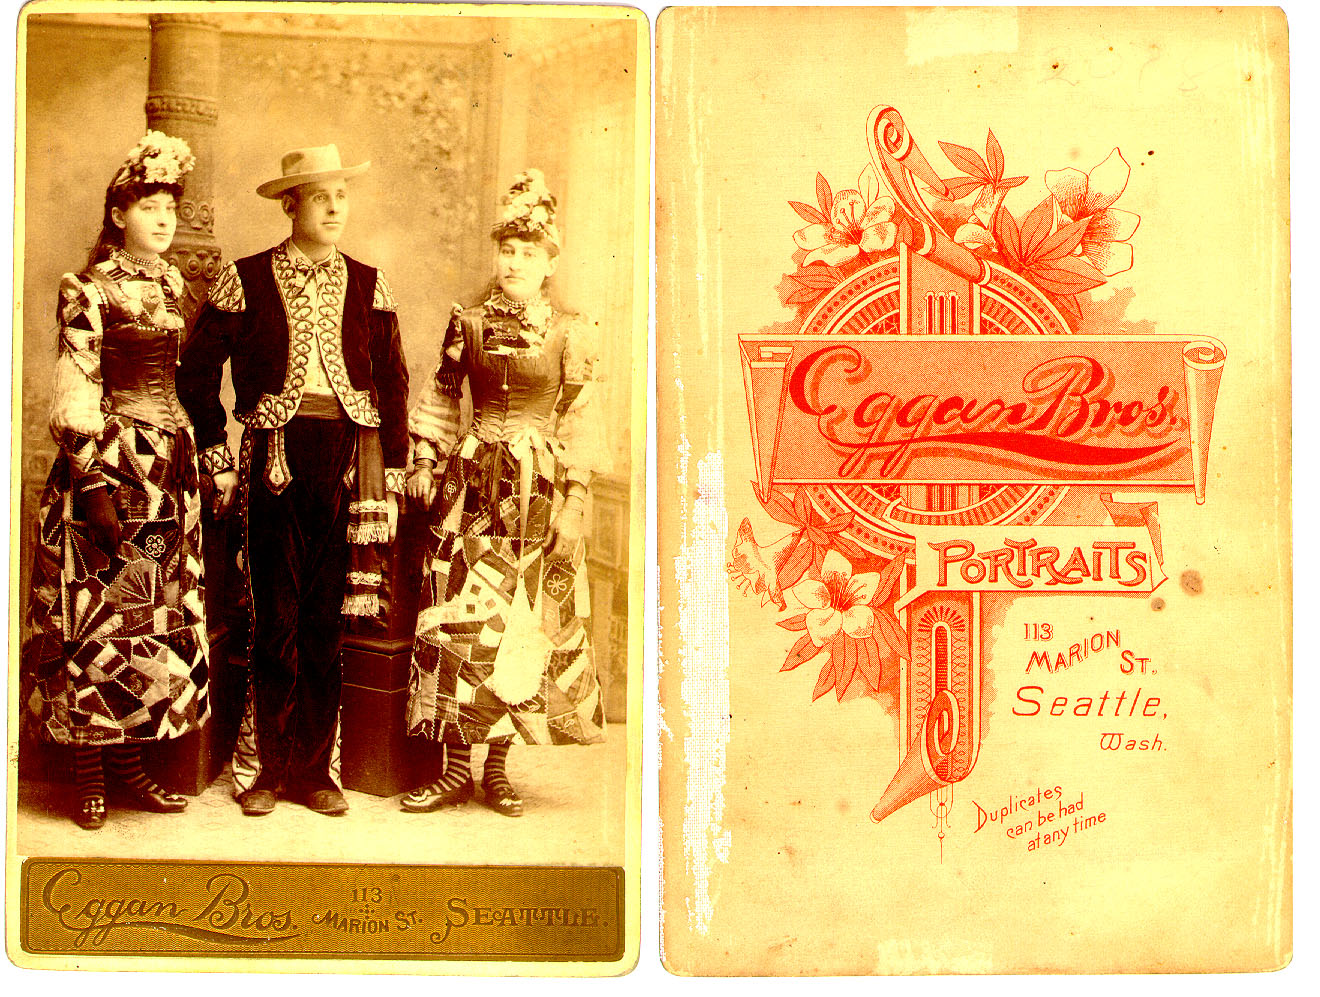 Eggan Bros. 113 Marion St. Seattle.
2078
Eggan Bros.
Portraits
113
Marion
St.,
Seattle,
Wash.
Duplicates
can be had
at any time